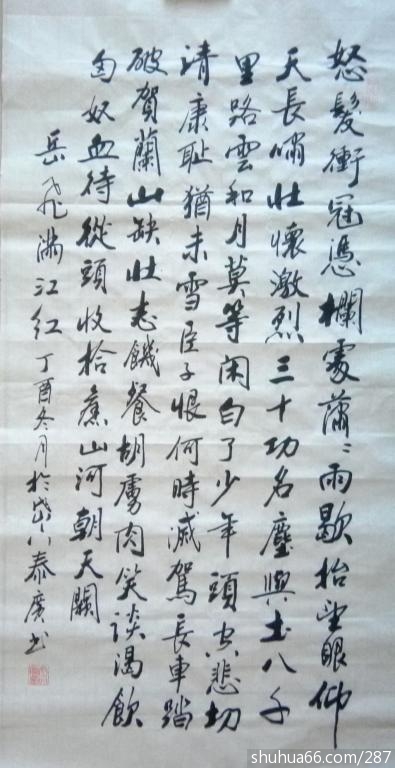 怒髮衝冠憑欄處蕭〻雨歇抬望眼仰
天長嘯壯懷激烈三十功名塵與土八千
里路雲和月莫等閑白了少年頭空悲切
靖康耻猶未雪臣子恨何時滅駕長車踏
破賀蘭山缺壯志饑餐胡虜肉笑談渴飲
匈奴血待從頭收拾舊山河朝天闕
岳飛滿江紅 丁酉冬月於岱下泰廣書
shuhua66.com/287